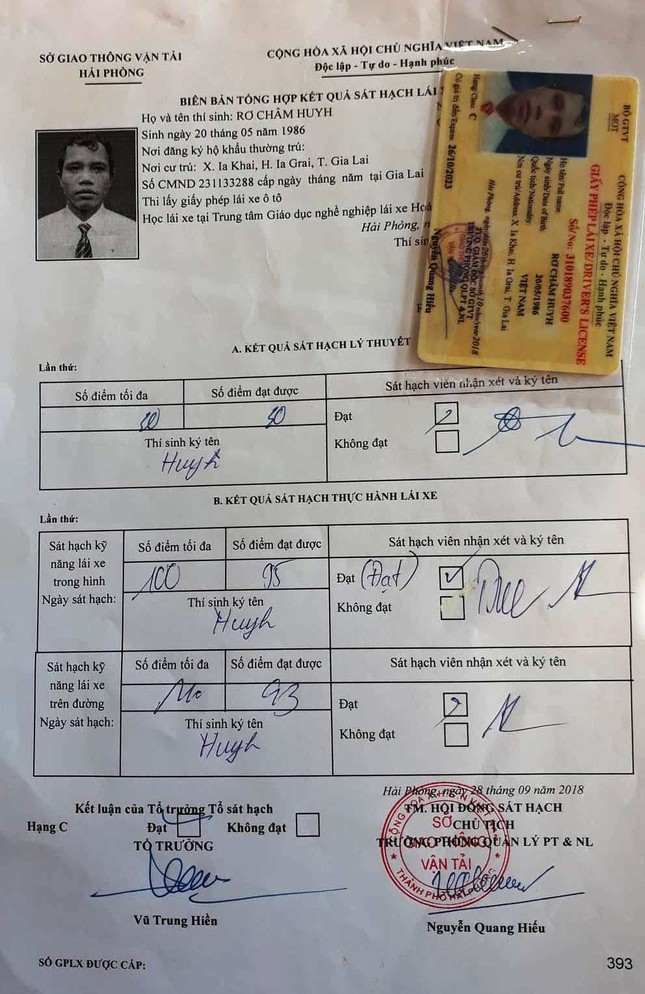 SỞ GIAO THÔNG VẬN TẢI
HẢI PHÒNG
CỘNG HÒA XÃ HỘI CHỦ NGHĨA VIỆT NAM
Độc lập - Tự do - Hạnh phúc
BIÊN BẢN TỔNG HỢP KẾT QUẢ SÁT HẠCH LÁI
Họ và tên thí sinh: RƠ CHÂM HUYH
Sinh ngày 20 tháng 05 năm 1986
Nơi đăng ký hộ khẩu thường trú:
Nơi cư trú: X. Ia Khai, H. Ia Grai, T. Gia Lai
Số CMND 231133288 cấp ngày tháng năm tại Gia Lai
Thi lấy giấy phép lái xe ô tô
Học lái xe tại Trung tâm Giáo dục nghề nghiệp lái xe
Hải Phòng,
Thí sinh
BỘ GTVT
MOT
CỘNG HÒA XÃ HỘI CHỦ NGHĨA VIỆT NAM
Độc lập - Tự do - Hạnh phúc
GIẤY PHÉP LÁI XE/DRIVER'S LICENSE
Số/No: 310189037600
Họ tên/Full name: RƠ CHÂM HUYH
Ngày sinh/Date of Birth: 20/05/1986
Quốc tịch/Nationality: VIỆT NAM
Nơi cư trú/Address: X. Ia Khai, H. Ia Grai, T. Gia Lai
Hạng/Class: C
Có giá trị đến/Expires: 26/10/2023
Nguyễn Quang Hiếu
A. KẾT QUẢ SÁT HẠCH LÝ THUYẾT
Lần thứ:
Số điểm tối đa
Số điểm đạt được
Sát hạch viên nhận xét và ký tên
30
30
Đạt
Không đạt
Thí sinh ký tên
Huyh
B. KẾT QUẢ SÁT HẠCH THỰC HÀNH LÁI XE
Lần thứ:
Sát hạch kỹ năng lái xe trong hình
Ngày sát hạch:
Số điểm tối đa
Số điểm đạt được
Sát hạch viên nhận xét và ký tên
100
95
Đạt (Đạt)
Không đạt
Thí sinh ký tên
Huyh
Sát hạch kỹ năng lái xe trên đường
Ngày sát hạch:
Số điểm tối đa
Số điểm đạt được
Sát hạch viên nhận xét và ký tên
93
Đạt
Không đạt
Thí sinh ký tên
Huyh
Hải Phòng, ngày 28 tháng 09 năm 2018
Kết luận của Tổ trưởng Tổ sát hạch
TM. HỘI ĐỒNG SÁT HẠCH
Hạng C
Đạt
Không đạt
CHỦ TỊCH
TỔ TRƯỞNG
TRƯỞNG PHÒNG QUẢN LÝ PT & NL
SỞ
GIAO THÔNG
VẬN TẢI
Vũ Trung Hiền
Nguyễn Quang Hiếu
SỐ GPLX ĐƯỢC CẤP:
393